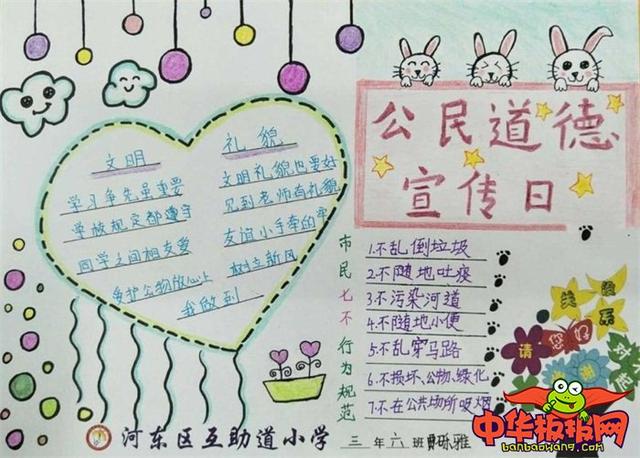 公民道德
宣传日
文明
学习争先虽重要
学校规定都遵守
同学之间相友爱
爱护公物放心上
我做到
礼貌
文明礼貌也要好
见到老师有礼貌
友谊小手牵的牢
树立新风
市民七不行为规范
1.不乱倒垃圾
2.不随地吐痰
3.不污染河道
4.不随地小便
5.不乱穿马路
6.不损坏、公物、绿化
7.不在公共场所吸烟
请
您好
美
系
对
河东区互助道小学
三年六班
砾雅
中华板报网
banbaowang.com